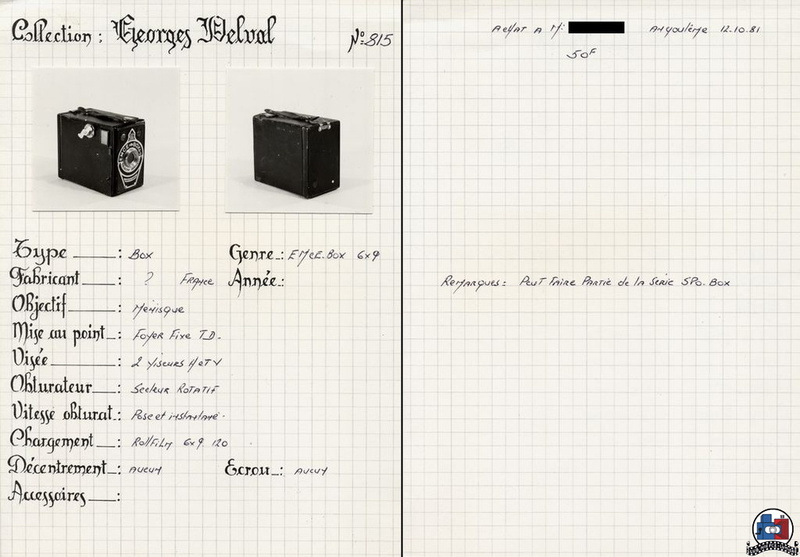 Collection : Georges Delval
N° 815
Type : Box
Genre : EMCE. Box 6x9
Fabricant : ? France
Année :
Objectif : Ménisque
Mise au point : Foyer Fixe T.D.
Visée : 2 Viseurs H et V
Obturateur : Secteur Rotatif
Vitesse obturat. : Pose et instantané.
Chargement : Rollfilm 6x9 120
Décentrement : Aucun
Ecrou : Aucun
Accessoires :
Achat A M: Angoulême 12.10.81
50F
Remarques : Peut Faire Partie de la Serie SPO. Box